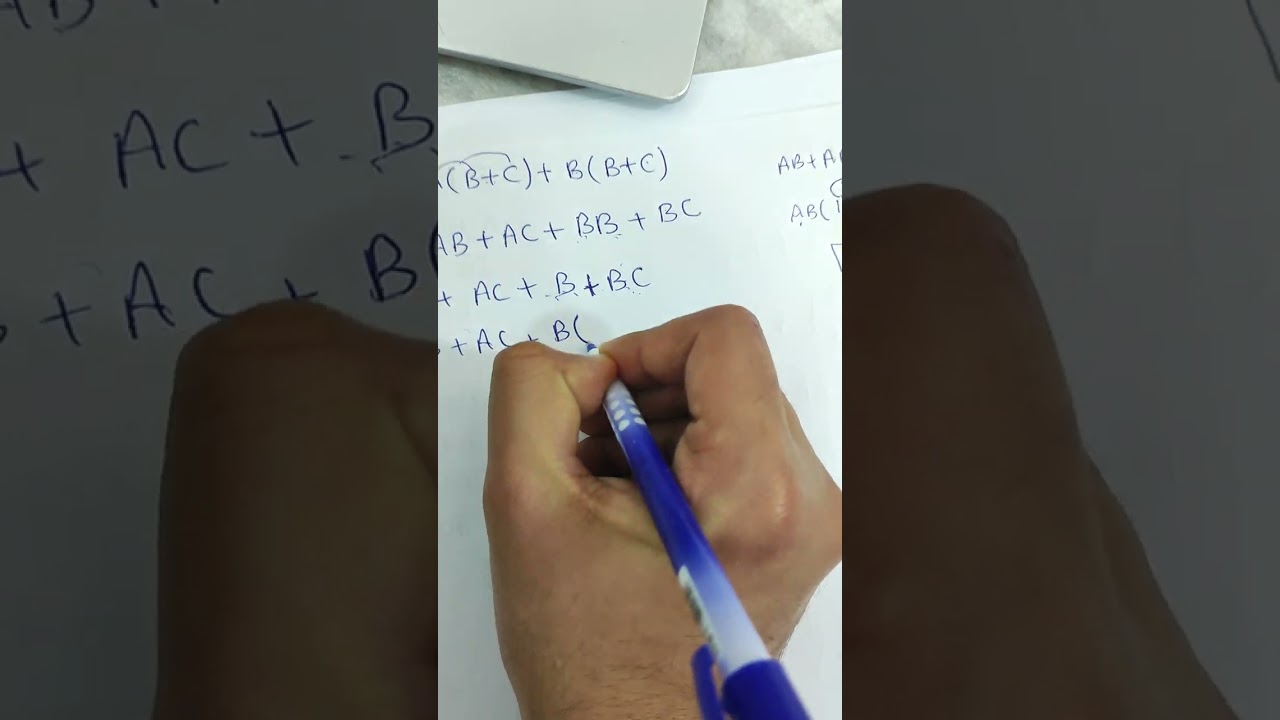 (B+C)+ B(B+C)
AB+AC+BB+BC
+ AC+B+BC
+ AC+ B(
AB+A
AB(1